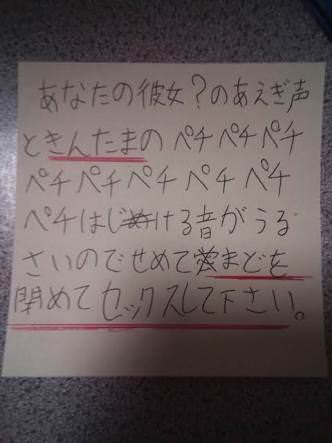 あなたの彼女?のあえぎ声
ときんたまのペチペチペチ
ペチペチペチペチペチ
ペチはじける音がうる
さいのでせめてまどを
閉めてセックスして下さい。